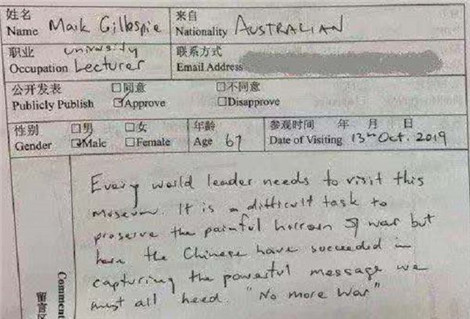 姓名 来自
Name Mark Gillespie Nationality AUSTRALIAN
职业 university 联系方式
Occupation Lecturer Email Address
公开发表 □同意 □不同意
Publicly Publish ☑Approve □Disapprove
性别 □男 □女 年龄 参观时间 年 月 日
Gender ☑Male □Female Age 67 Date of Visiting 13th Oct. 2019
Every world leader needs to visit this
Museum. It is a difficult task to
preserve the painful horrors of war but
here the Chinese have succeeded in
capturing the powerful message we
must all heed. "No more war"
Comment
留言区